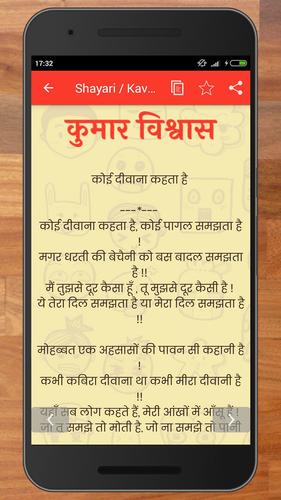 17:32
Shayari / Kav...
कुमार विश्वास
कोई दीवाना कहता है
---*---
कोई दीवाना कहता है, कोई पागल समझता है
!
मगर धरती की बेचैनी को बस बादल समझता
है !!
मैं तुझसे दूर कैसा हूँ , तू मुझसे दूर कैसी है !
ये तेरा दिल समझता है या मेरा दिल समझता है
!!
मोहब्बत एक अहसासों की पावन सी कहानी है
!
कभी कबिरा दीवाना था कभी मीरा दीवानी है
!!
यहाँ सब लोग कहते हैं, मेरी आंखों में आँसू हैं !
जो तू समझे तो मोती है, जो ना समझे तो पानी